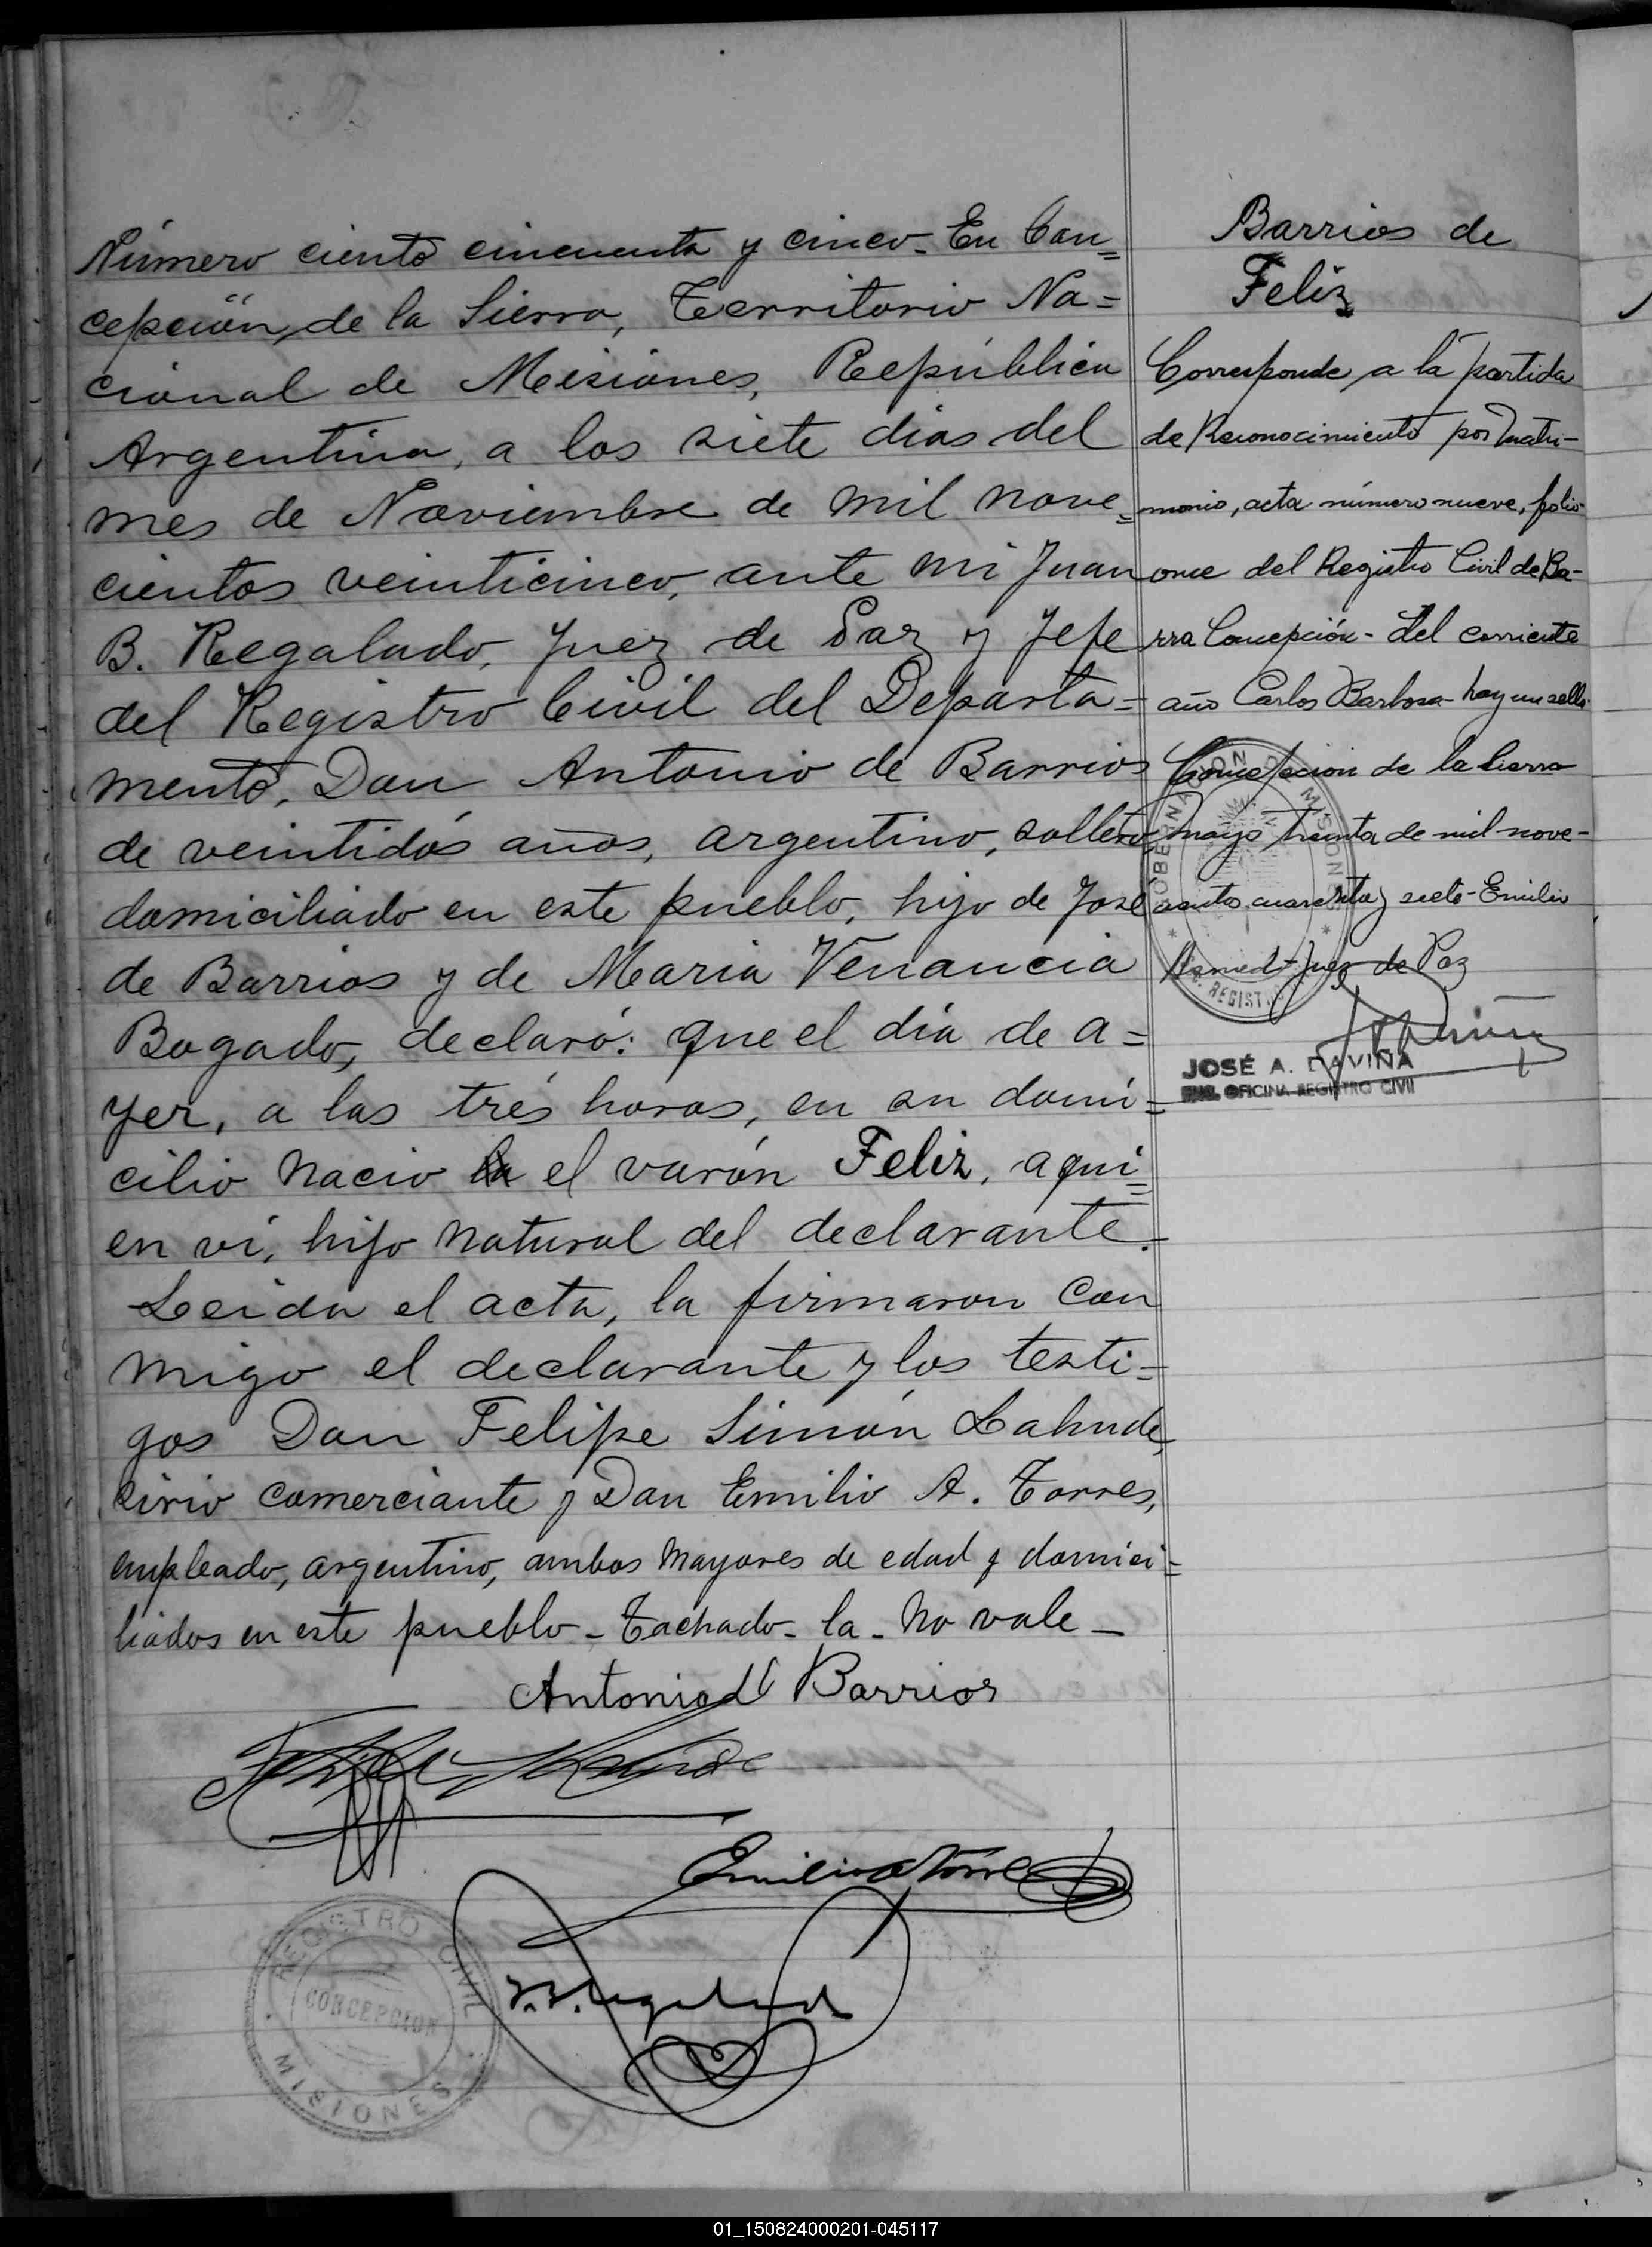 Número ciento cincuenta y cinco - En Con=
cepción, de la Sierra, Territorio Na=
cional de Misiones, República
Argentina, a los siete dias del
mes de Noviembre de mil nove=
cientos veinticinco, ante mi Juan
B. Regalado, Juez de Paz y Jefe
del Registro Civil del Departa=
mento, Don Antonio de Barrios
de veintidós años, argentino, soltero,
domiciliado en este pueblo, hijo de José
de Barrios y de Maria Venancia
Bogado, declaró: que el día de a=
yer, a las tres horas, en su domi=
cilio nacio la el varón Feliz, a qui=
en vi, hijo natural del declarante.
Leida el acta, la firmaron con
migo el declarante y los testi=
gos Don Felipe Simón Lahude,
sirio comerciante y Don Emilio A. Torres,
empleado, argentino, ambos mayores de edad y domici=
liados en este pueblo - Tachado - la - no vale -
Antonio d Barrios
Emilio A Torres
J. B. Regalado
REGISTRO CIVIL
CONCEPCION
MISIONES
Barrios de
Feliz
Corresponde a la partida
de Reconocimiento por Matri-
monio, acta número nueve, folio
once del Registro Civil de Ba-
rra Concepción - del corriente
año Carlos Barbosa - hay un sello.
Concepcion de la Sierra
mayo treinta de mil nove-
cientos cuarenta y siete - Emilio
Juez de Paz
GOBERNACION DE MISIONES
REGISTRO
JOSÉ A. DAVIÑA
ENC. OFICINA REGISTRO CIVIL
01_150824000201-045117